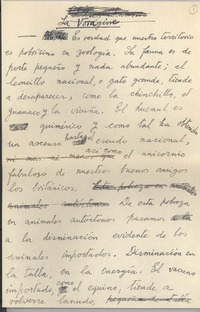 La Vorágine
Es verdad que nuestro territorio
es pobrísimo en zoología. Su fauna es de
porte pequeño y nada abundante; el
leoncillo nacional, o gato grande, tiende
a desaparecer, como la chinchilla, el
guanaco y la vicuña. El huemul es
quimérico y como tal ha obtenido
un ascenso hasta el escudo nacional,
así como el unicornio
fabuloso de nuestros buenos amigos
los británicos.
De esta pobreza
en animales autóctonos pasamos
a la disminución evidente de los
animales importados. Disminución en
la talla, en la energía. El vacuno
importado, como el equino, tiende a
volverse lanudo,